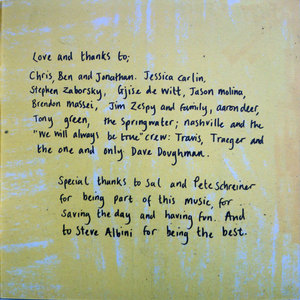 Love and thanks to;
Chris, Ben and Jonathan. Jessica Carlin,
Stephen Zaborsky, Gjise de Witt, Jason Molina,
Brendon Massei, Jim Zespy and Family, aaron deer,
Tony green, the Springwater; nashville and the
"we will always be true" crew: Travis, Traeger and
the one and only Dave Doughman.
Special thanks to Sal and Pete Schreiner
for being part of this music, for
saving the day and having fun. And
to Steve Albini for being the best.